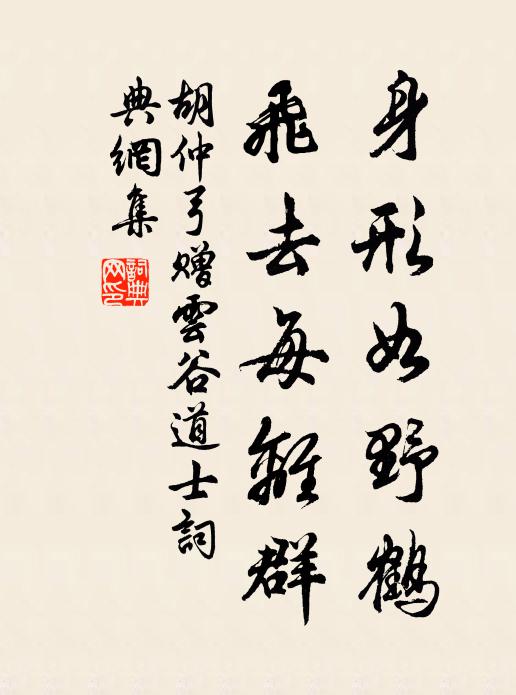 身形如野鶴
飛去每離群
胡仲弓贈雲谷道士詞
典網集
詞典網印